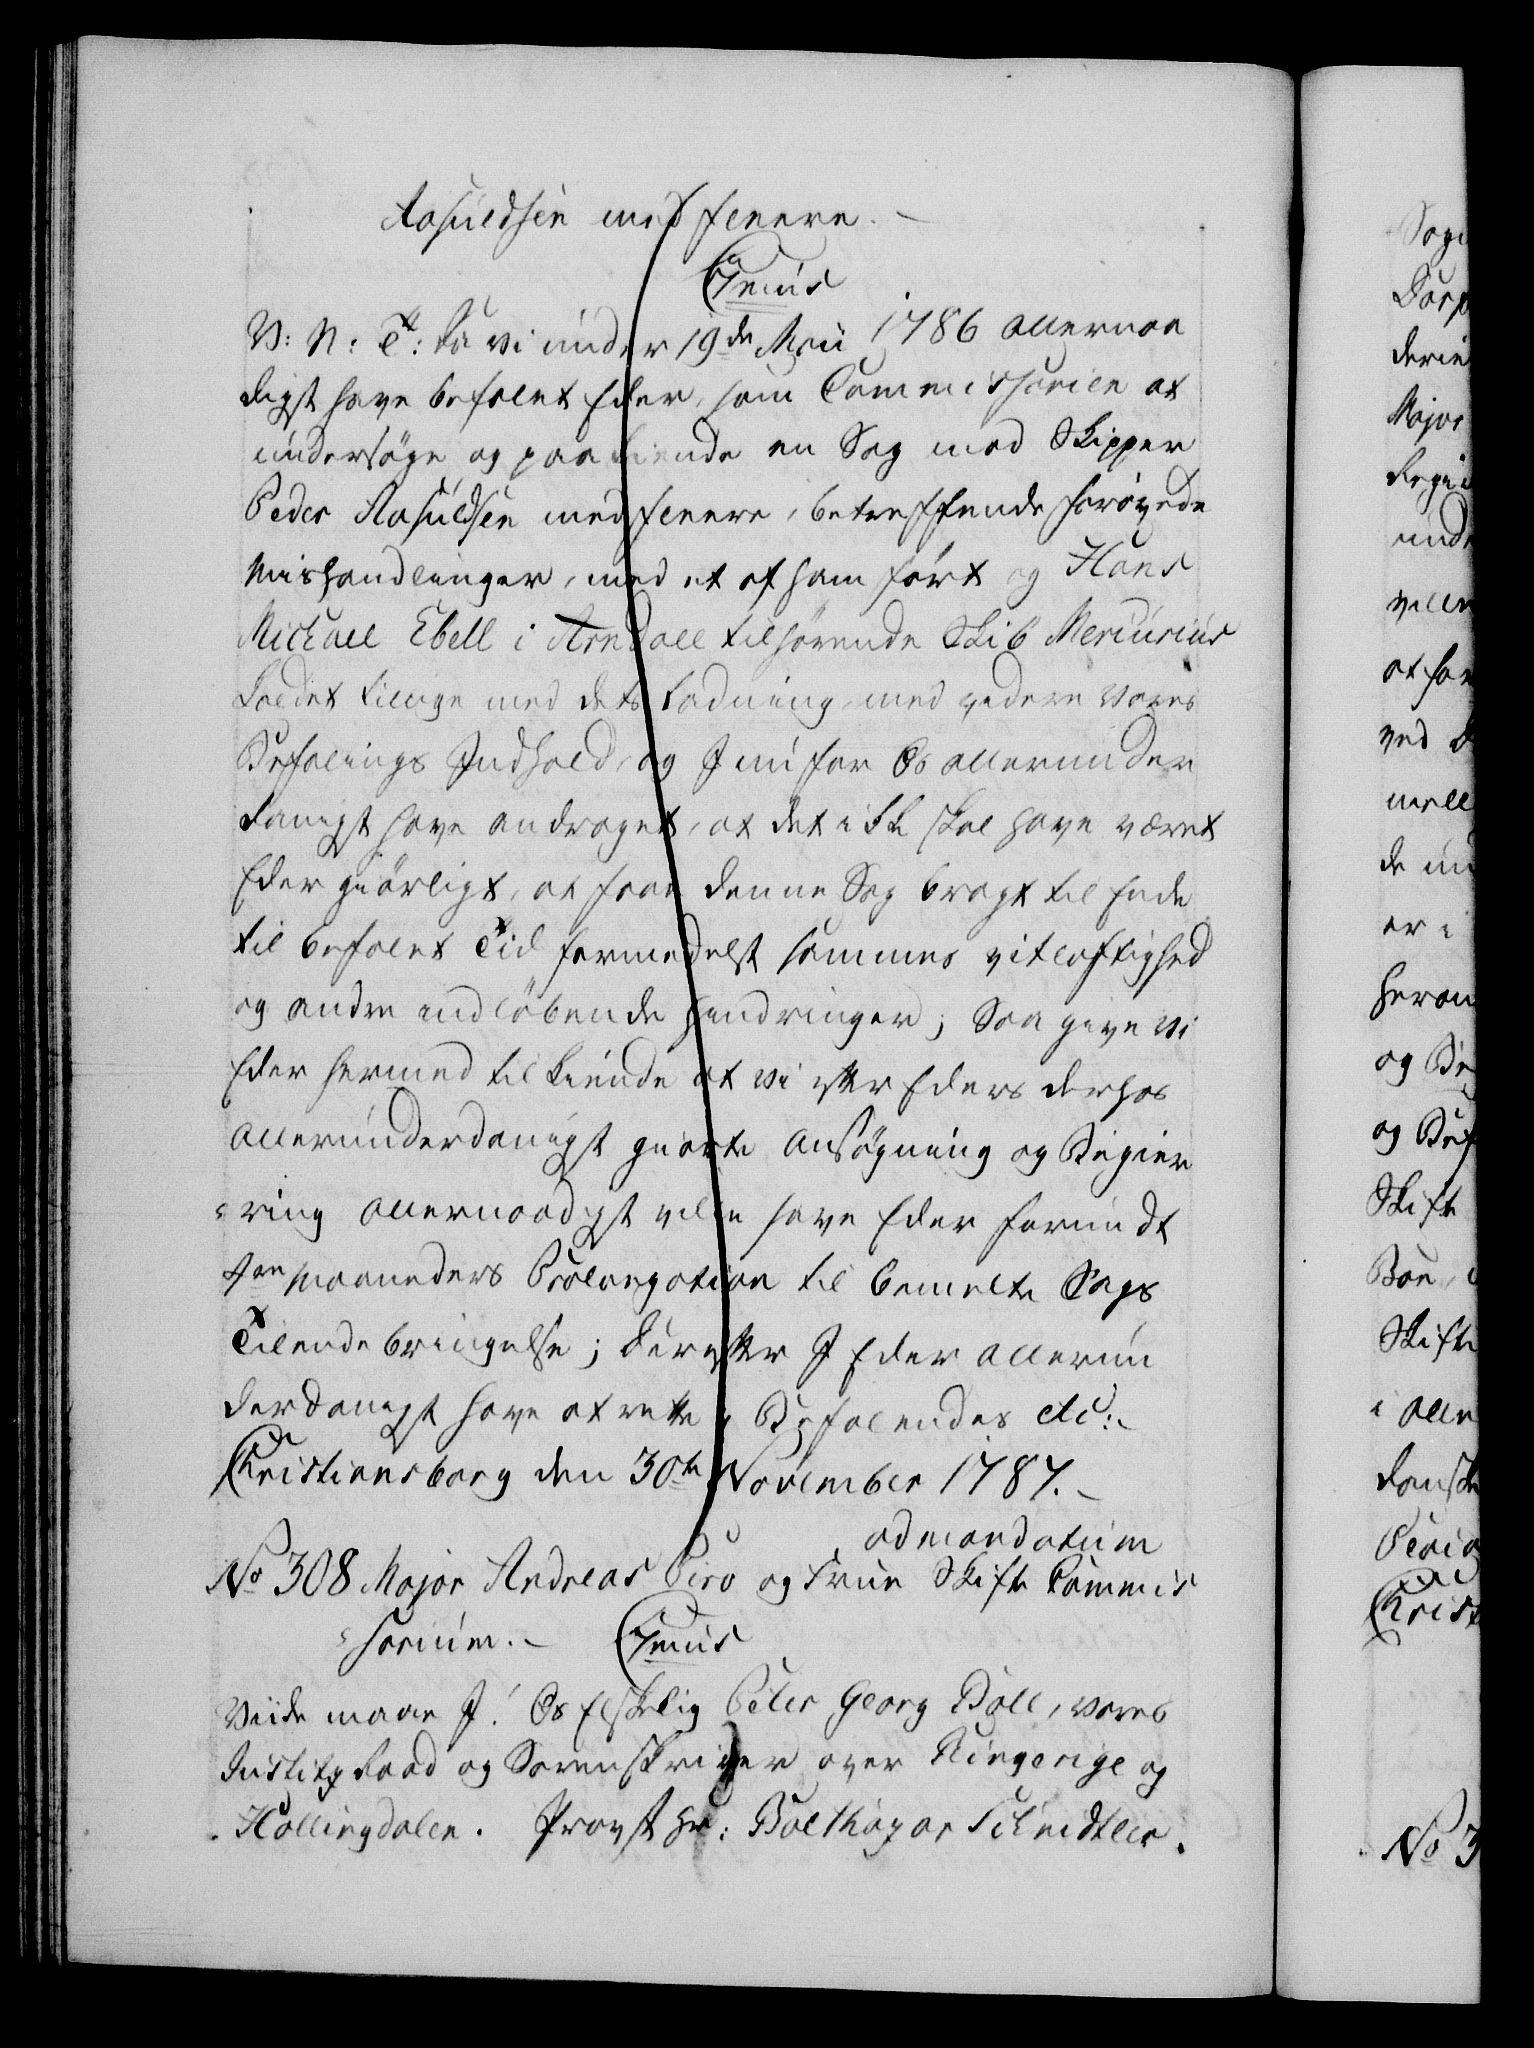 Aasuldsen med fleere.
C7mus
V: N: T: Da vi under 19de Maii 1786 allernaa
digst have befalet Eder, som Commissarier at
undersøge og paakiende en Sag mod Skipper
Peder Aasuldsen med fleere, betreffende forøvede
Mishandlinger, med et af ham ført og Hans
Michael Ebell i Arndall tilhørende Skib Mercurius
kaldet tillige med dets Ladning, med videre Vores
Befalings Indhold, og I nu for Os allerunder
danigst have andraget, at det ikke skal have været
Eder giørligt, at faae denne Sag bragt til Ende
til befalet Tid formedelst sammes vitløftighed
og andre indløbende Hindringer; Saa give Vi
Eder hermed tilkiende at Vi efter Eders derhos
allerunderdanigst giorte Ansøgning og Begier
ring allernaadigst ville have Eder forundt
Maaneders Prolongation til bemelte Sags
Tilendebringelse; derefter I Eder allerun
derdanigst have at rette, Befalendes etc:
Christiansborg den 30te November 1787.
ad mandatum
No 308 Major Andreas Piro og Frue Skifte Commis
sarium. C7mus
Viide maae I! Os elskelig Peter Georg Ball, vores
Justitz Raad og Sorenskriver over Ringerige og
Hallingdalen. Provst Hr: Balthazar Schnidtler.
Sogn
ved
de un
er i
og Be
og Bef
Skifte
Boe
Skifte
i alle
danske
Christ
No 3